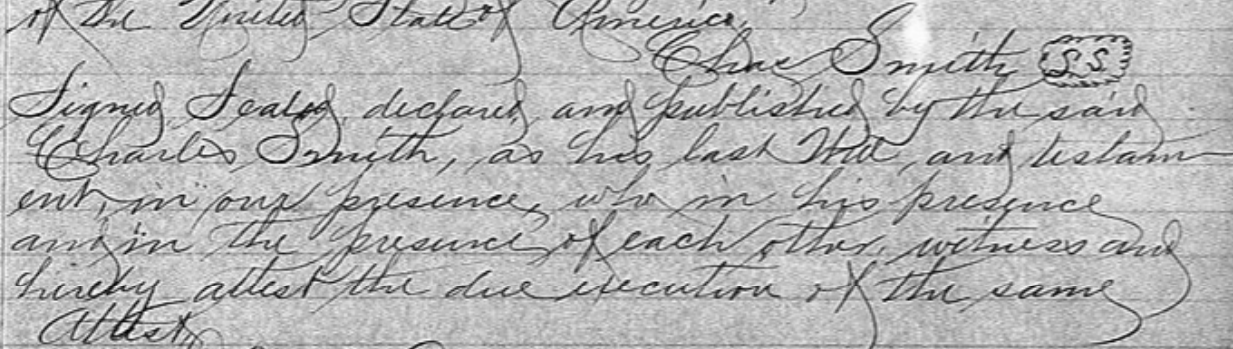 of the United State of America.
Chas Smith S.S.
Signed, Sealed, declared, and published by the said
Charles Smith, as his last Will, and testam-
ent, in our presence, who in his presence
and in the presence of each other, witness and
hereby attest the due execution of the same
Attest